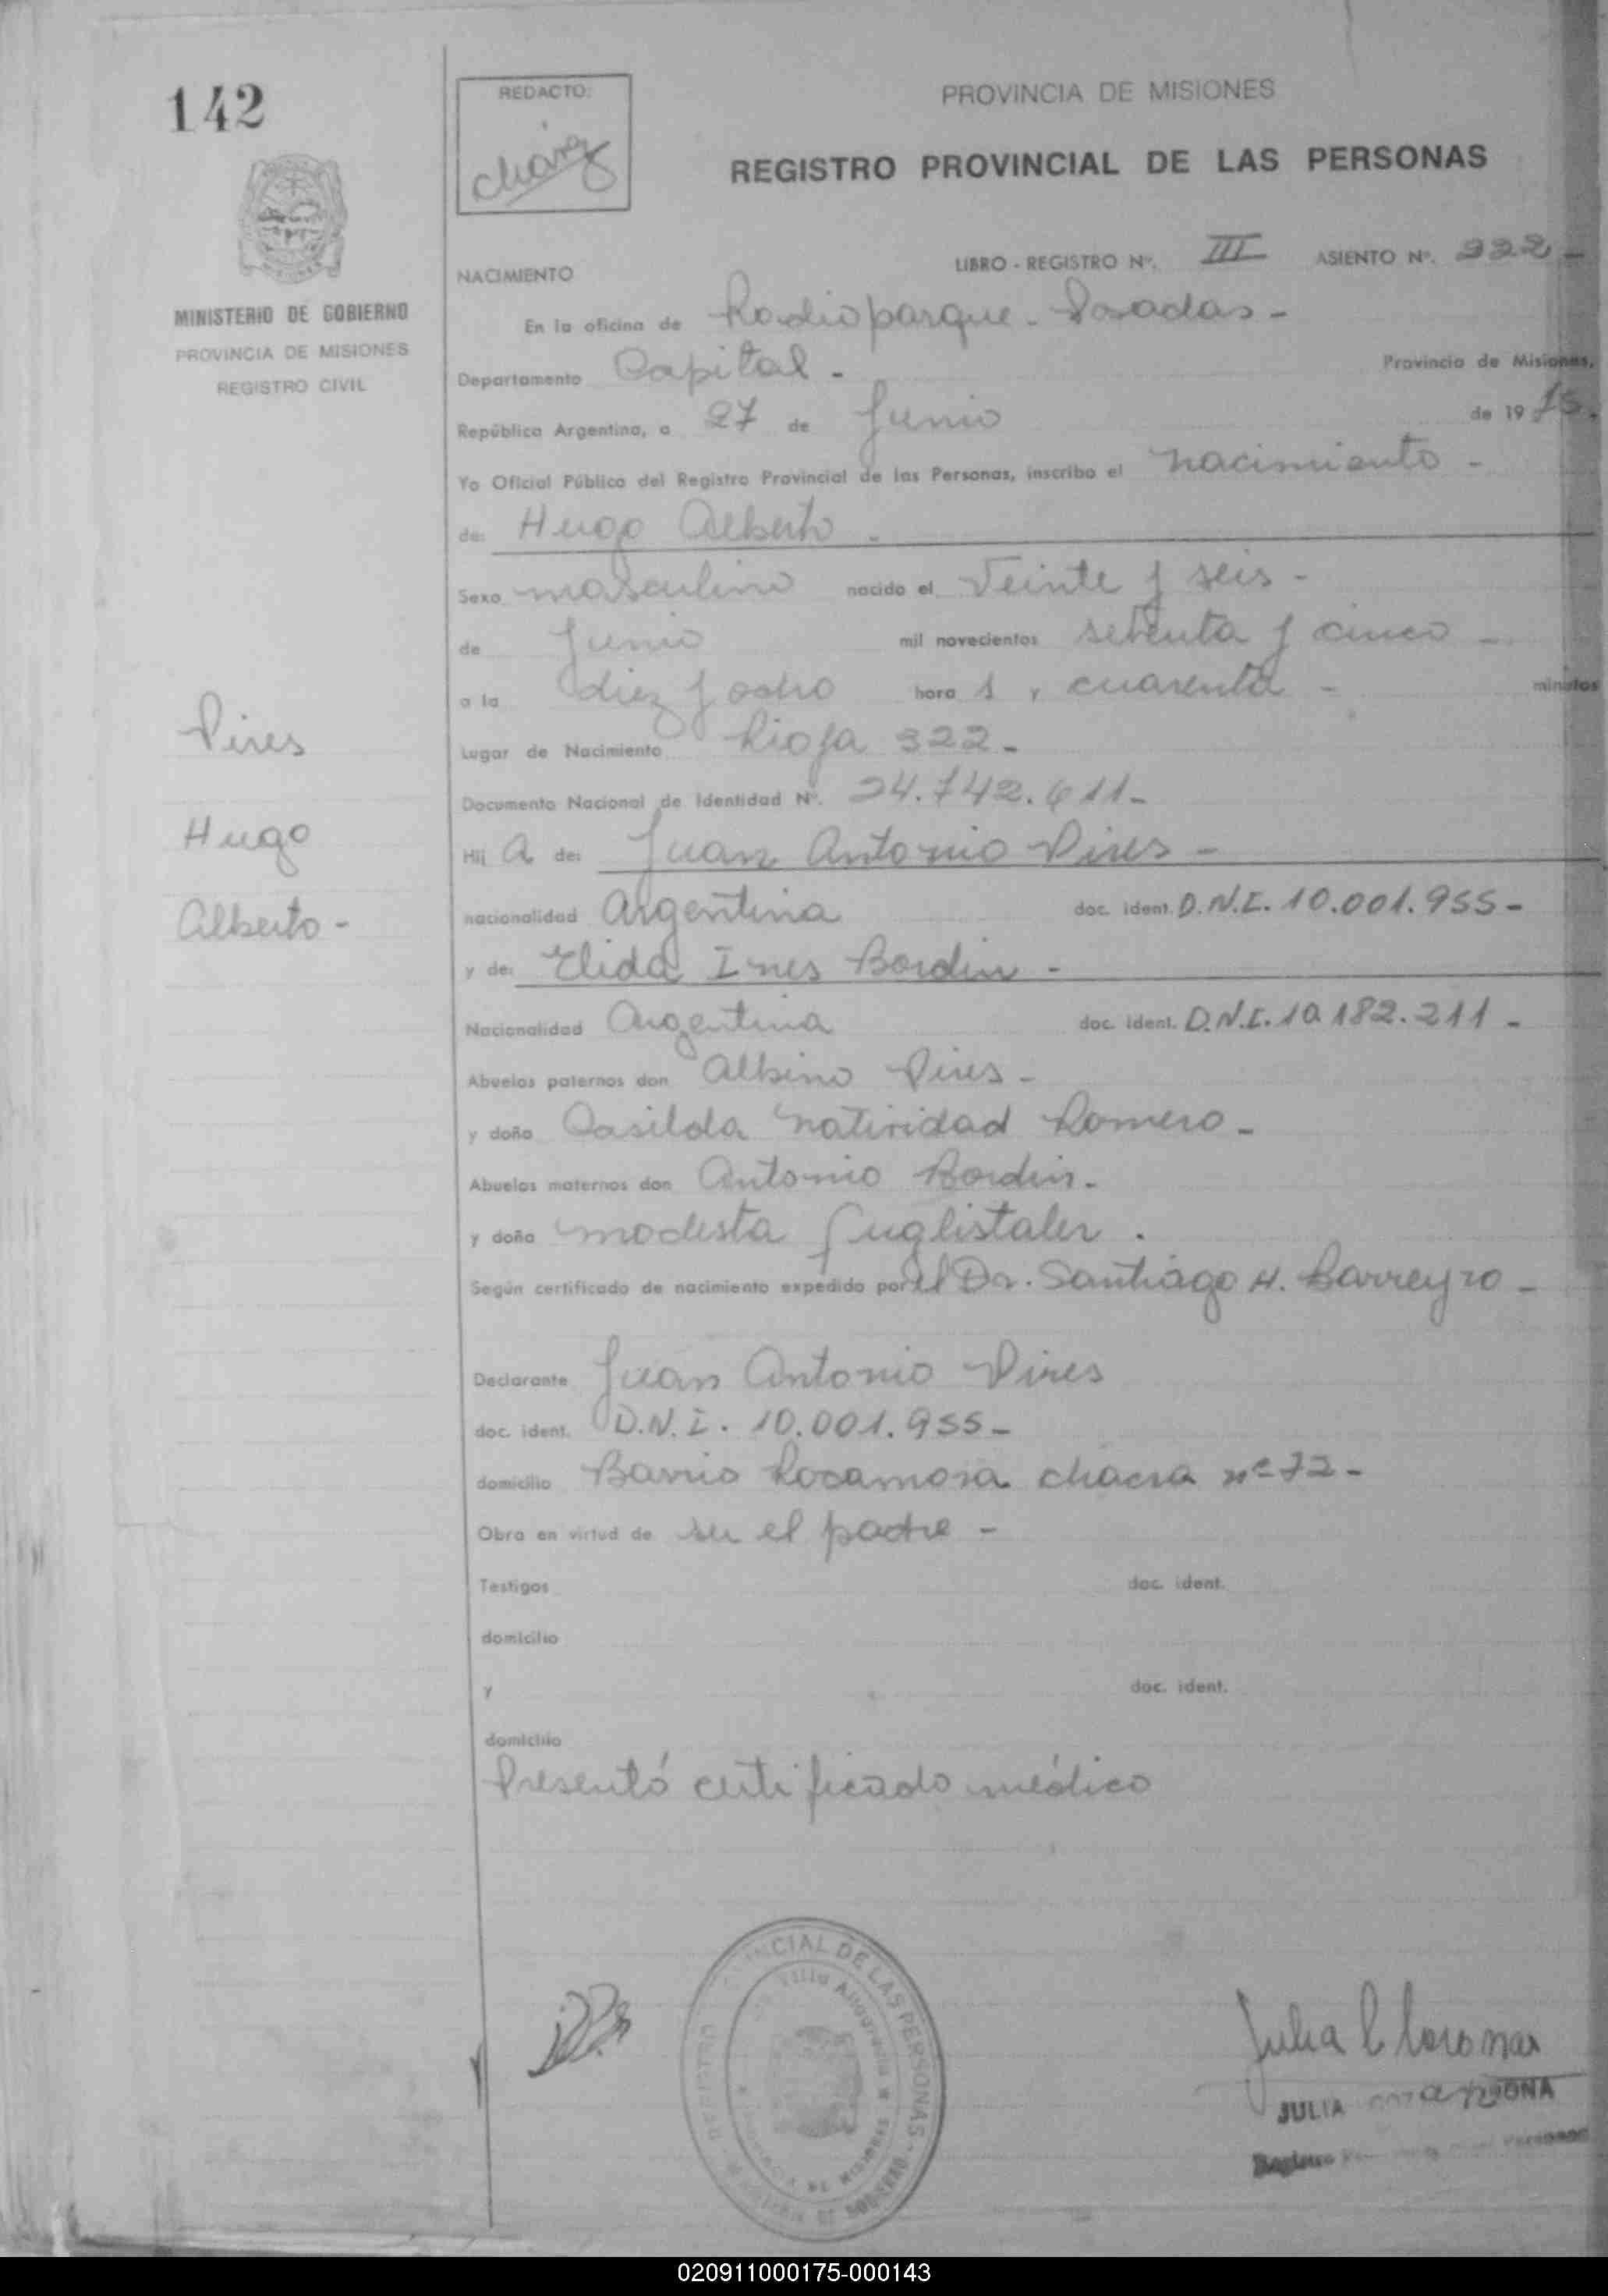 142
REDACTO:
PROVINCIA DE MISIONES
REGISTRO PROVINCIAL DE LAS PERSONAS
MINISTERIO DE GOBIERNO
PROVINCIA DE MISIONES
REGISTRO CIVIL
LIBRO - REGISTRO Nº. III ASIENTO Nº. 922 -
NACIMIENTO
En la oficina de Radioparque - Posadas -
Departamento Capital - Provincia de Misiones,
República Argentina, a 27 de Junio de 19 75.
Yo Oficial Público del Registro Provincial de las Personas, inscribo el nacimiento -
de: Hugo Alberto -
Sexo masculino nacido el Veinte y seis -
de Junio mil novecientos setenta y cinco -
a la diez y ocho hora s y cuarenta - minutos
Lugar de Nacimiento Rioja 322 -
Documento Nacional de Identidad Nº. 24.742.611 -
Hij o de: Juan Antonio Pires -
nacionalidad Argentina doc. ident. D.N.I. 10.001.955 -
y de: Elida Ines Bordin -
Nacionalidad Argentina doc. ident. D.N.I. 10.182.211 -
Abuelos paternos don Albino Pires -
y doña Casilda Natividad Romero -
Abuelos maternos don Antonio Bordin -
y doña Modesta Juglistaler .
Según certificado de nacimiento expedido por el Dr. Santiago H. Barreyro -
Declarante Juan Antonio Pires
doc. ident. D.N.I. 10.001.955 -
domicilio Barrio Rocamora chacra nº 72 -
Obra en virtud de ser el padre -
Testigos doc. ident.
domicilio
y doc. ident.
domicilio
Presentó certificado médico
Pires
Hugo
Alberto -
CIAL DE LAS PERSONAS
JULIA
020911000175-000143